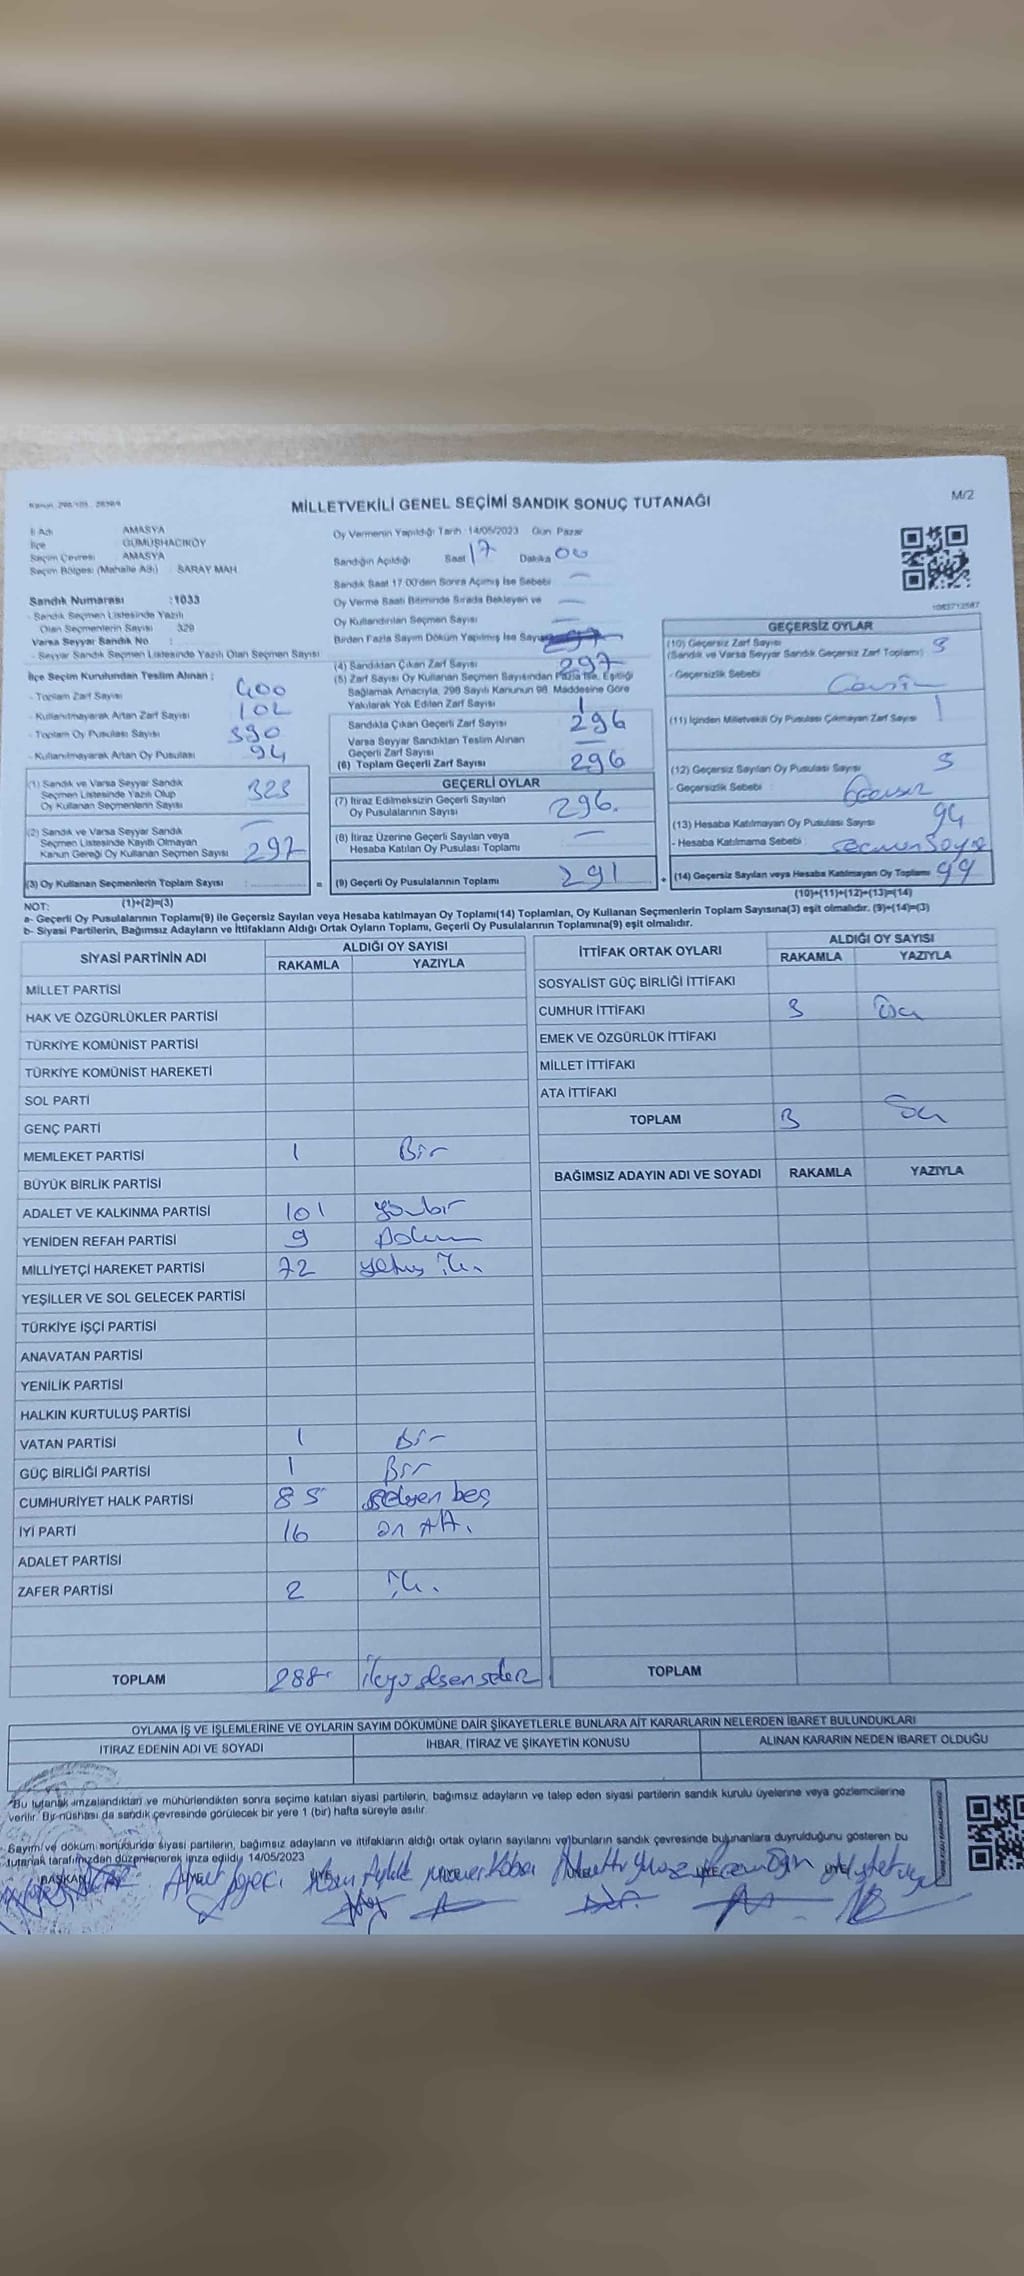 MİLLETVEKİLİ GENEL SEÇİMİ SANDIK SONUÇ TUTANAĞI
M/2
İl Adı AMASYA
İlçe GÜMÜŞHACIKÖY
Seçim Çevresi AMASYA
Seçim Bölgesi (Mahalle Adı) : SARAY MAH
Sandık Numarası :1033
- Sandık Seçmen Listesinde Yazılı
Olan Seçmenlerin Sayısı : 329
Varsa Seyyar Sandık No :
- Seyyar Sandık Seçmen Listesinde Yazılı Olan Seçmen Sayısı
İlçe Seçim Kurulundan Teslim Alınan ;
- Toplam Zarf Sayısı 400
- Kullanılmayarak Artan Zarf Sayısı 102
- Toplam Oy Pusulası Sayısı 390
- Kullanılmayarak Artan Oy Pusulası 94
(1) Sandık ve Varsa Seyyar Sandık
Seçmen Listesinde Yazılı Olup
Oy Kullanan Seçmenlerin Sayısı 323
(2) Sandık ve Varsa Seyyar Sandık
Seçmen Listesinde Kayıtlı Olmayan
Kanun Gereği Oy Kullanan Seçmen Sayısı 297
(3) Oy Kullanan Seçmenlerin Toplam Sayısı :
Oy Vermenin Yapıldığı Tarih :14/05/2023 Gün Pazar
Sandığın Açıldığı Saat 17 Dakika 00
Sandık Saat 17:00'den Sonra Açılmış İse Sebebi —
Oy Verme Saati Bitiminde Sırada Bekleyen ve —
Oy Kullandırılan Seçmen Sayısı —
Birden Fazla Sayım Döküm Yapılmış İse Sayısı
(4) Sandıktan Çıkan Zarf Sayısı 297
(5) Zarf Sayısı Oy Kullanan Seçmen Sayısından Fazla İse, Eşitliği
Sağlamak Amacıyla, 298 Sayılı Kanunun 98. Maddesine Göre
Yakılarak Yok Edilen Zarf Sayısı 1
Sandıkta Çıkan Geçerli Zarf Sayısı 296
Varsa Seyyar Sandıktan Teslim Alınan
Geçerli Zarf Sayısı —
(6) Toplam Geçerli Zarf Sayısı 296
GEÇERLİ OYLAR
(7) İtiraz Edilmeksizin Geçerli Sayılan
Oy Pusulalarının Sayısı 296.
(8) İtiraz Üzerine Geçerli Sayılan veya
Hesaba Katılan Oy Pusulası Toplamı —
= (9) Geçerli Oy Pusulalarının Toplamı 291
1083712587
GEÇERSİZ OYLAR
(10) Geçersiz Zarf Sayısı 3
(Sandık ve Varsa Seyyar Sandık Geçersiz Zarf Toplamı)
- Geçersizlik Sebebi
(11) İçinden Milletvekili Oy Pusulası Çıkmayan Zarf Sayısı 1
(12) Geçersiz Sayılan Oy Pusulası Sayısı 5
- Geçersizlik Sebebi Geçersiz
(13) Hesaba Katılmayan Oy Pusulası Sayısı 94
- Hesaba Katılmama Sebebi :
+ (14) Geçersiz Sayılan veya Hesaba Katılmayan Oy Toplamı 99
NOT: (1)+(2)=(3) (10)+(11)+(12)+(13)=(14)
a- Geçerli Oy Pusulalarının Toplamı(9) ile Geçersiz Sayılan veya Hesaba katılmayan Oy Toplamı(14) Toplamları, Oy Kullanan Seçmenlerin Toplam Sayısına(3) eşit olmalıdır. (9)+(14)=(3)
b- Siyasi Partilerin, Bağımsız Adayların ve İttifakların Aldığı Ortak Oyların Toplamı, Geçerli Oy Pusulalarının Toplamına(9) eşit olmalıdır.
SİYASİ PARTİNİN ADI ALDIĞI OY SAYISI
RAKAMLA YAZIYLA
MİLLET PARTİSİ
HAK VE ÖZGÜRLÜKLER PARTİSİ
TÜRKİYE KOMÜNİST PARTİSİ
TÜRKİYE KOMÜNİST HAREKETİ
SOL PARTİ
GENÇ PARTİ
MEMLEKET PARTİSİ 1 Bir
BÜYÜK BİRLİK PARTİSİ
ADALET VE KALKINMA PARTİSİ 101 yüzbir
YENİDEN REFAH PARTİSİ 9 Dokuz
MİLLİYETÇİ HAREKET PARTİSİ 72 yetmiş iki
YEŞİLLER VE SOL GELECEK PARTİSİ
TÜRKİYE İŞÇİ PARTİSİ
ANAVATAN PARTİSİ
YENİLİK PARTİSİ
HALKIN KURTULUŞ PARTİSİ
VATAN PARTİSİ 1 Bir
GÜÇ BİRLİĞİ PARTİSİ 1 Bir
CUMHURİYET HALK PARTİSİ 85 seksen beş
İYİ PARTİ 16 on altı.
ADALET PARTİSİ
ZAFER PARTİSİ 2 iki.
TOPLAM 288
İTTİFAK ORTAK OYLARI ALDIĞI OY SAYISI
RAKAMLA YAZIYLA
SOSYALİST GÜÇ BİRLİĞİ İTTİFAKI
CUMHUR İTTİFAKI 3 Üç
EMEK VE ÖZGÜRLÜK İTTİFAKI
MİLLET İTTİFAKI
ATA İTTİFAKI
TOPLAM 3 Üç
BAĞIMSIZ ADAYIN ADI VE SOYADI RAKAMLA YAZIYLA
TOPLAM
OYLAMA İŞ VE İŞLEMLERİNE VE OYLARIN SAYIM DÖKÜMÜNE DAİR ŞİKAYETLERLE BUNLARA AİT KARARLARIN NELERDEN İBARET BULUNDUKLARI
İTİRAZ EDENİN ADI VE SOYADI İHBAR, İTİRAZ VE ŞİKAYETİN KONUSU ALINAN KARARIN NEDEN İBARET OLDUĞU
Bu tutanak imzalandıktan ve mühürlendikten sonra seçime katılan siyasi partilerin, bağımsız adayların ve talep eden siyasi partilerin sandık kurulu üyelerine veya gözlemcilerine
verilir. Bir nüshası da sandık çevresinde görülecek bir yere 1 (bir) hafta süreyle asılır.
Sayım ve döküm sonucunda siyasi partilerin, bağımsız adayların ve ittifakların aldığı ortak oyların sayılarını ve bunların sandık çevresinde bulunanlara duyurulduğunu gösteren bu
tutanak tarafımızdan düzenlenerek imza edildi. 14/05/2023
BAŞKAN ÜYE ÜYE ÜYE ÜYE ÜYE ÜYE